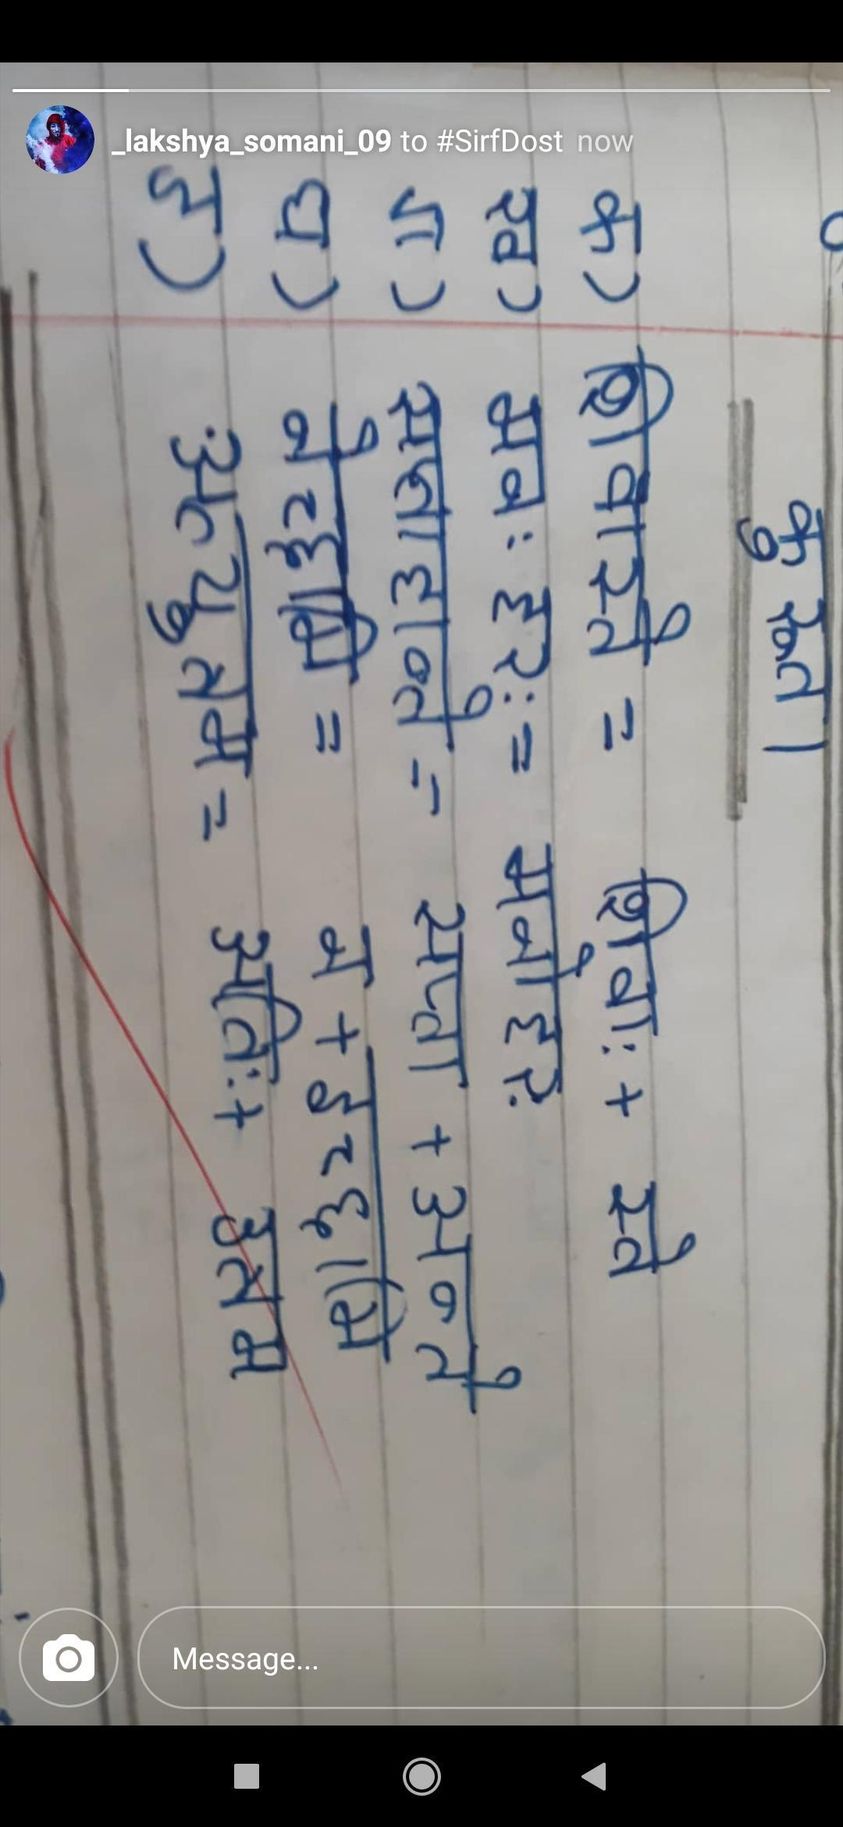 _lakshya_somani_09 to #SirfDost now
कुरूत।
क) शिवास्ते = शिवाः + स्ते
ख) मनः हरः = मनोहरः
ग) सप्ताहान्ते = सप्ता + अन्ते
घ) नेच्छामि = न + ईच्छामि
ङ) अत्युत्तम = अतिः + उत्तम
Message...